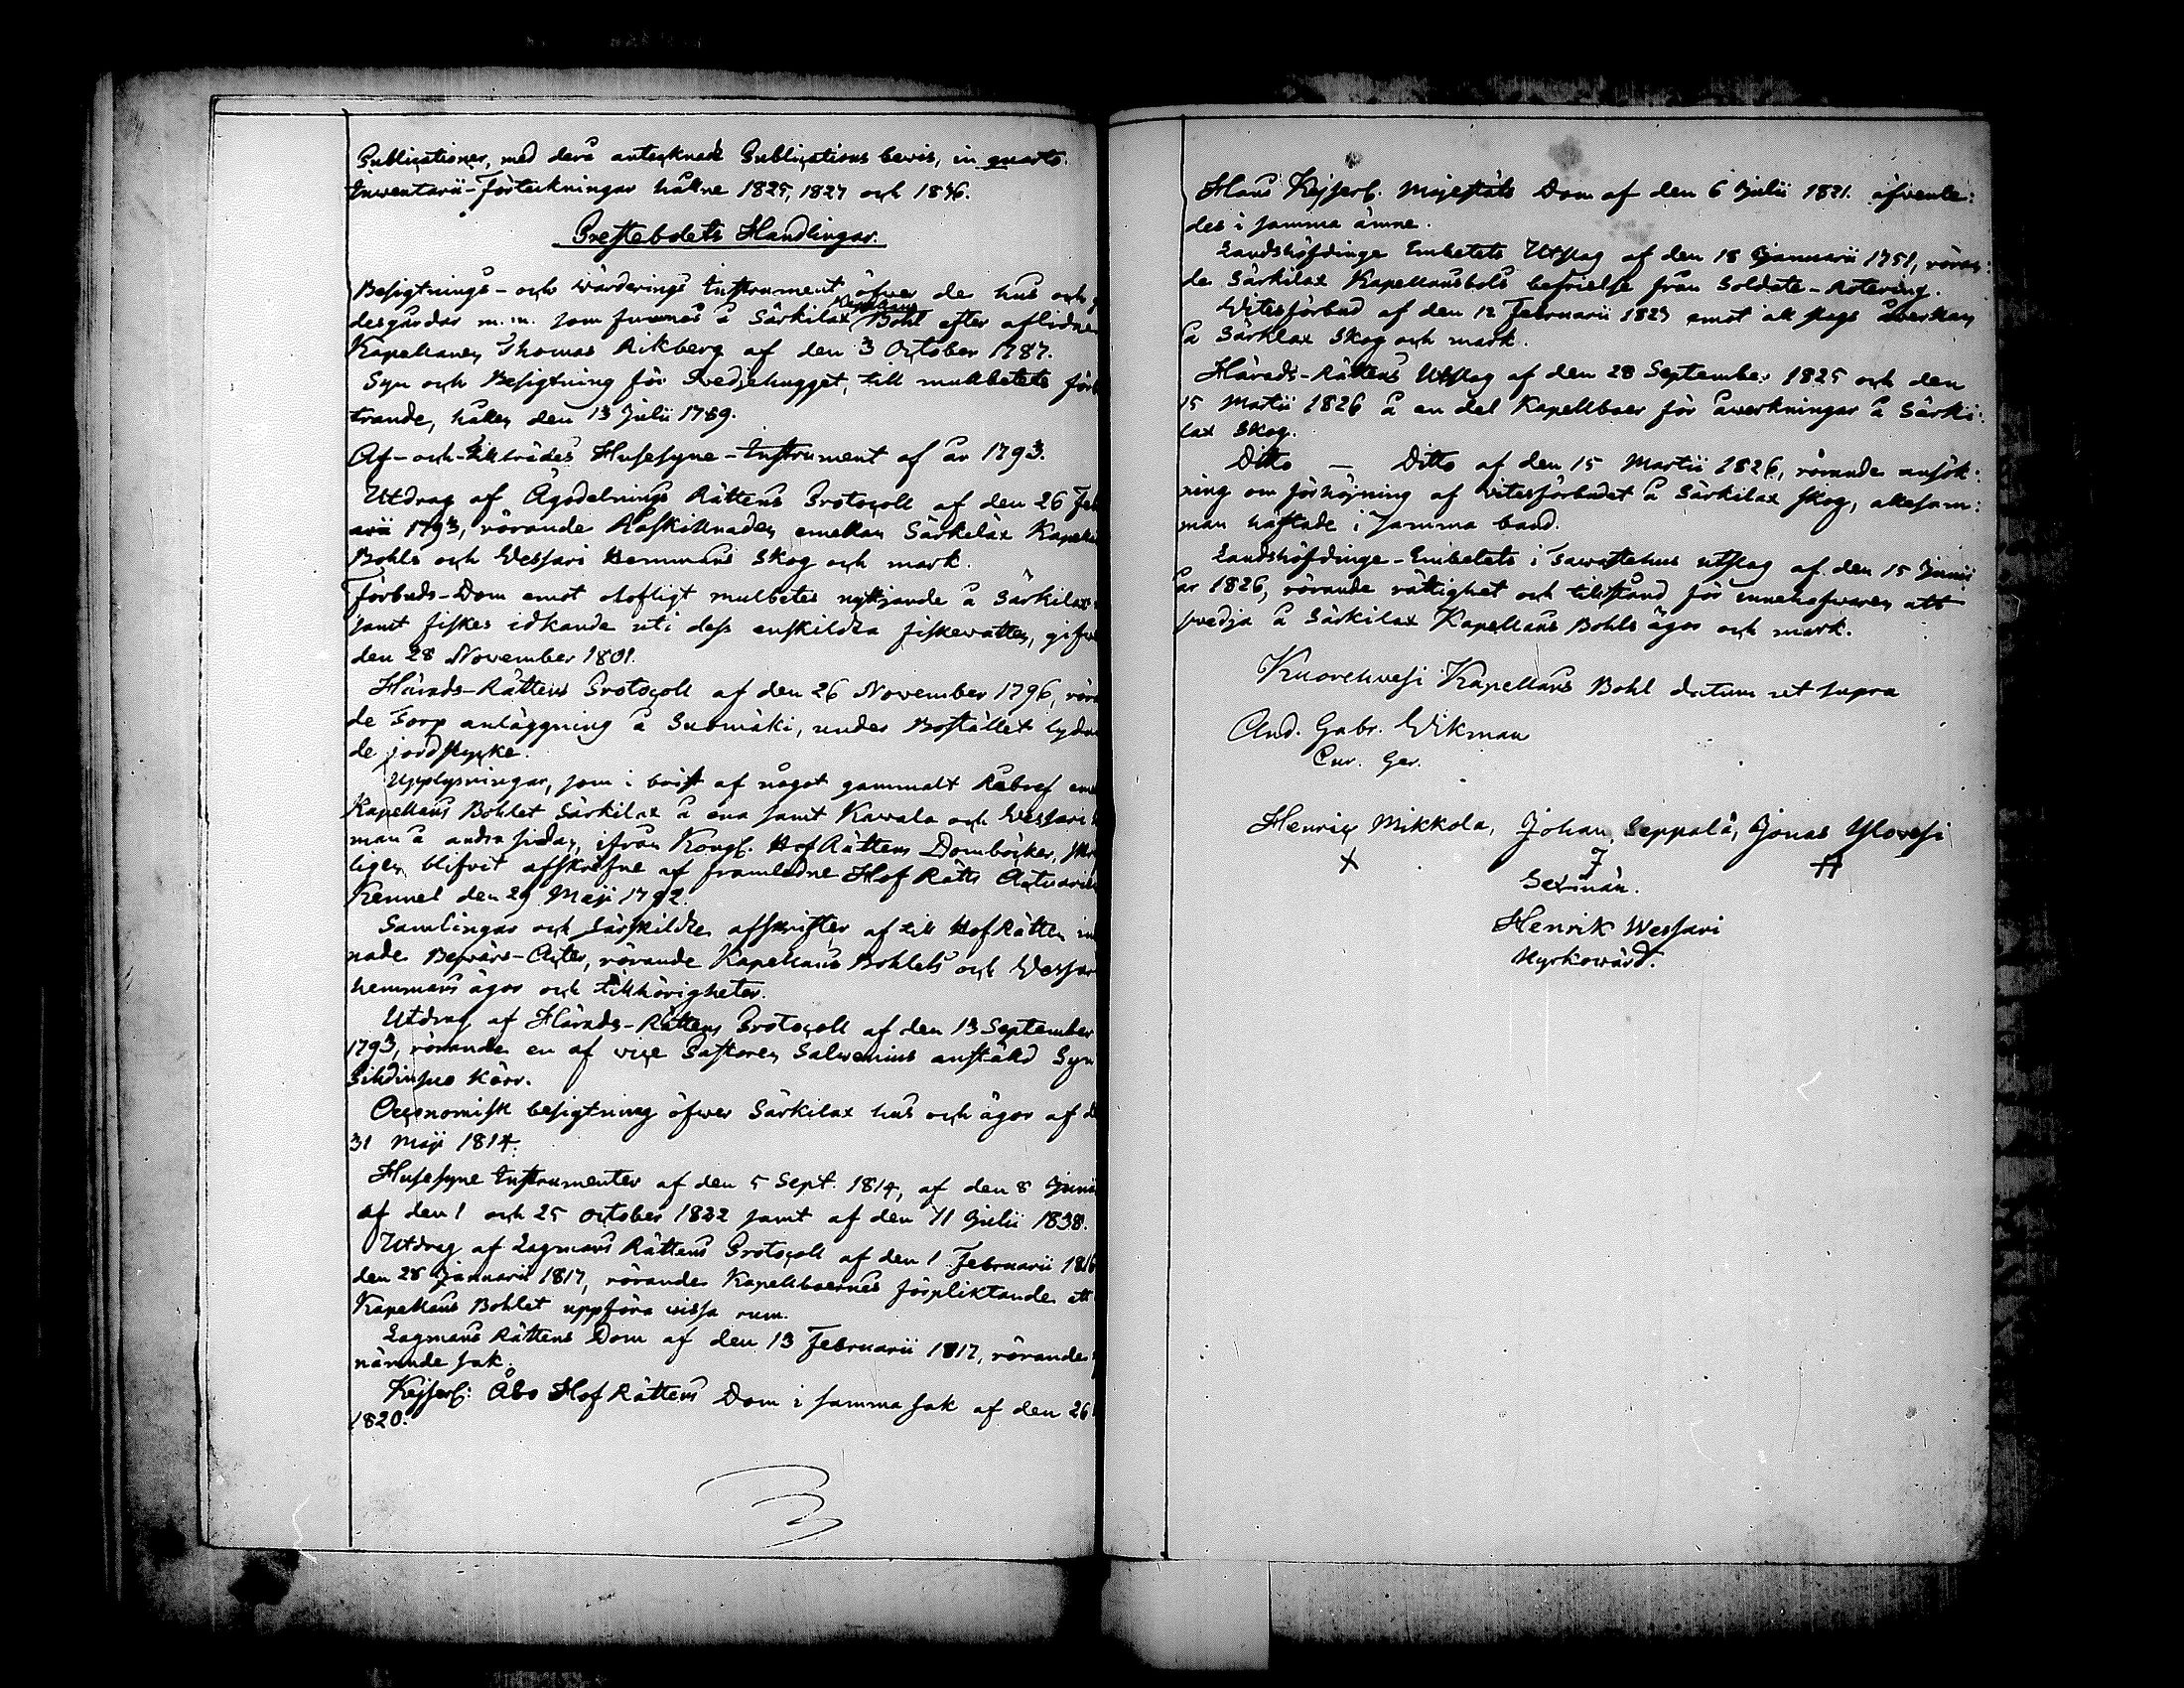 Publicationer, med derå antecknade Publications bevis, in quarto.
Inventarii-Förteckningar hållne 1825, 1827 och 1836.
Prestebolets Handlingar.
Besigtnings- och wärderings Instrument öfwer de hus och
desgårdar m.m. som funnos å Särkilax Kapellans Bohl efter aflidne
Kapellanen Thomas Rikberg af den 3 October 1787.
Syn och Besigtning för Svedjehugget, till mulbetets för
trande, hållen den 13 Julii 1789.
Af- och Tillträdes Husesyne-Instrument af år 1793.
Utdrag af Ägodelnings Rättens Protocoll af den 26 Feb
arii 1793, rörande Råskillnaden emellan Särkeläx Kapella
Bohls och Wessari Hemmans Skog och mark.
Förbuds-Dom emot olofligt mulbetes nyttjande å Särkilax
samt fiskes idkande uti dess enskildta fiskewatten, gifwe
den 28 November 1801.
Härads-Rättens Protocoll af den 26 November 1796, röra
de Torp anläggning å Suomäki, under Bostället lydan
de jordstycke.
Upplysningar, som i brist af något gammalt Råbref eme
Kapellans Bohlet Särkilax å ena samt Kawala och Wessari
man å andra sidan, ifrån Kongl. Hof Rättens Domböcker, skr
ligen blifvit afskrefne af framledne Hof Rätts Actuarie
Kennel den 29 Maji 1792.
Samlingar och särskildte afskrifter af till Hof Rätten in
nade Beswärs-Acter, rörande Kapellans Bohlets och Wessar
hemmans ägor och tillhörigheter.
Utdrag af Härads-Rättens Protocoll af den 13 September
1793, rörande en af vice Pastoren Salwenius anstäld Syn
Sildinsuo kärr.
Oeconomisk besigtning öfwer Särkilax hus och ägor af d
31 Maji 1814.
Husesyne Instrumenter af den 5 Sept. 1814, af den 8 Junii
af den 1 och 25 October 1822 samt af den 11 Julii 1838.
Utdrag af Lagmans Rättens Protocoll af den 1 Februarii 1816
den 28 Januarii 1817, rörande Kapellboernes förpliktande att
Kapellans Bohlet uppföra wissa rum.
Lagmans Rättens Dom af den 13 Februarii 1817, rörande
nämnde sak.
Kejserl: Åbo Hof Rättens Dom i samma sak af den 26
1820.
Hans Kejserl. Majestäts Dom af den 6 Julii 1821. äfwenle:
des i samma ämne.
Landshöfdinge Embetets Utslag af den 18 Januarii 1751, röran:
de Särkilax Kapellansbols befrielse från Soldate-Rotering.
Witesförbud af den 12 Februarii 1823 emot all slags åwerkan
å Särklax Skog och mark.
Härads-Rättens Utslag af den 28 September 1825 och den
15 Martii 1826 å en del Kapellboer för åwerkningar å Särki:
lax Skog.
Ditto — Ditto af den 15 Martii 1826, rörande ansök:
ning om förhöjning af witesförbudet å Särkilax skog, allesam:
man häftade i samma band.
Landshöfdinge-Embetets i Tawastehus utslag af den 15 Junii
år 1826, rörande rättighet och tillstånd för innehafwaren att
swedja å Särkilax Kapellans Bohls ägor och mark.
Kuorehwesi Kapellans Bohl datum ut supra
And. Gabr. Wikman
Cur. Ger.
Henric Mikkola, Johan Seppälä, Jonas Ylovesi
Sexmän.
Henrik Wessari
Kyrkowärd.